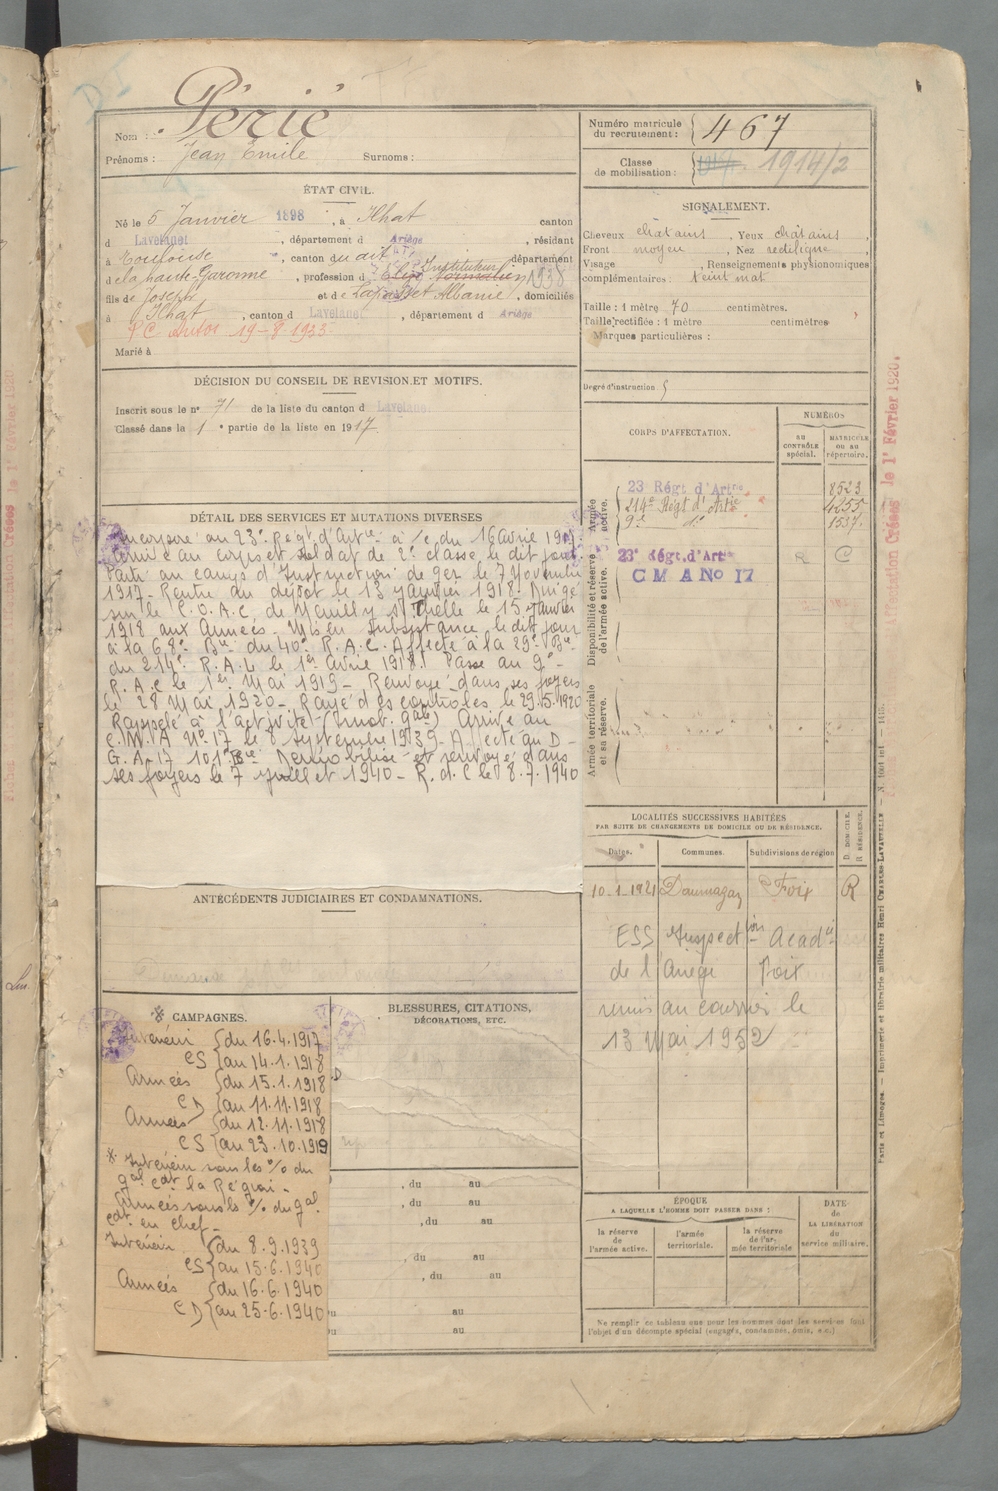 Nom : Périé
Prénoms : Jean Emile Surnoms :
Numéro matricule du recrutement : 467
Classe de mobilisation : 1917 1914/2
ÉTAT CIVIL.
Né le 5 Janvier 1898, à Ilhat canton
d Lavelanet, département d Ariège, résidant
à Toulouse, canton du dit, département
d e la haute-Garonne, profession d Instituteur 1938
fils de Joseph et de Lapasset Albanie, domiciliés
à Ilhat, canton d Lavelanet, département d Ariège
P C Autos 19-8-1933
Marié à
SIGNALEMENT.
Cheveux châtains Yeux châtains,
Front moyen, Nez rectiligne,
Visage , Renseignements physionomiques
complémentaires : teint mat
Taille : 1 mètre 70 centimètres.
Taille rectifiée : 1 mètre centimètres
Marques particulières :
Degré d'instruction.
DÉCISION DU CONSEIL DE REVISION ET MOTIFS.
Inscrit sous le n° 71 de la liste du canton d Lavelanet
Classé dans la 1e partie de la liste en 1917
CORPS D'AFFECTATION.
NUMÉROS
AU CONTRÔLE spécial.
MATRICULE OU AU répertoire.
Armée active.
23 Régt d'Artrie 8523
214e Régt d'Artie 4255
9e d° 1537
Disponibilité et réserve de l'armée active.
23e Régt.d'Artrie R C
C M A No 17
Armée territoriale et sa réserve.
DÉTAIL DES SERVICES ET MUTATIONS DIVERSES
Incorporé au 23e Régt d'Artie à /c du 16 avril 1917.
Arrivé au corps et soldat de 2e classe le dit jour.
Parti au camp d'Instruction de Ger le 7 Novembre
1917. Rentré au dépôt le 13 janvier 1918. Dirigé
sur le C.O.A.C. de Neuilly St le 15 janvier
1918 aux Armées. Mis en subsistance le dit jour
à la 68e Bie du 40e R.A.C. Affecté à la 29e Bie
du 214e R.A.C le 1er avril 1918. Passé au 9e
R.A.C le 1er Mai 1919 - Renvoyé dans ses foyers
le 28 Mai 1920 - Rayé des contrôles le 29.5.1920
Rappelé à l'activité (Mob. gale) Arrivé au
C.M.A N° 17 le 8 septembre 1939 - Affecté au D
G.A. 17 101e Bie Démobilisé et renvoyé dans
ses foyers le 7 juillet 1940 - R.d.C le 8.7.1940
LOCALITÉS SUCCESSIVES HABITÉES
PAR SUITE DE CHANGEMENTS DE DOMICILE OU DE RÉSIDENCE.
Dates. Communes. Subdivisions de région D. DOMICILE. R RÉSIDENCE.
10.1.1921 Daumazan Foix R
ESS Inspection Acadie
de l'Ariège Foix
remis au courrier le
13 Mai 1952
ANTÉCÉDENTS JUDICIAIRES ET CONDAMNATIONS.
* CAMPAGNES.
Intérieur { du 16.4.1917
CS { au 14.1.1918
Armées { du 15.1.1918
CD { au 11.11.1918
Armées { du 12.11.1918
CS { au 23.10.1919
* Intérieur sous les % du
gal cdt la Région -
Armées sous ls % du gal
cdt en chef -
Intérieur { du 8.9.1939
CS { au 15.6.1940
Armées { du 16.6.1940
CD { au 25.6.1940
BLESSURES, CITATIONS,
DÉCORATIONS, ETC.
, du au
, du au
, du au
, du au
, du au
au
au
ÉPOQUE
A LAQUELLE L'HOMME DOIT PASSER DANS :
la réserve de l'armée active.
l'armée territoriale.
la réserve de l'armée territoriale
DATE de LA LIBÉRATION du service militaire.
Ne remplir ce tableau que pour les hommes dont les services font
l'objet d'un décompte spécial (engagés, condamnés, omis, etc.)
Affectation Créées le 1er Février 1920.
Paris et Limoges. — Imprimerie et librairie militaires Henri CHARLES-LAVAUZELLE